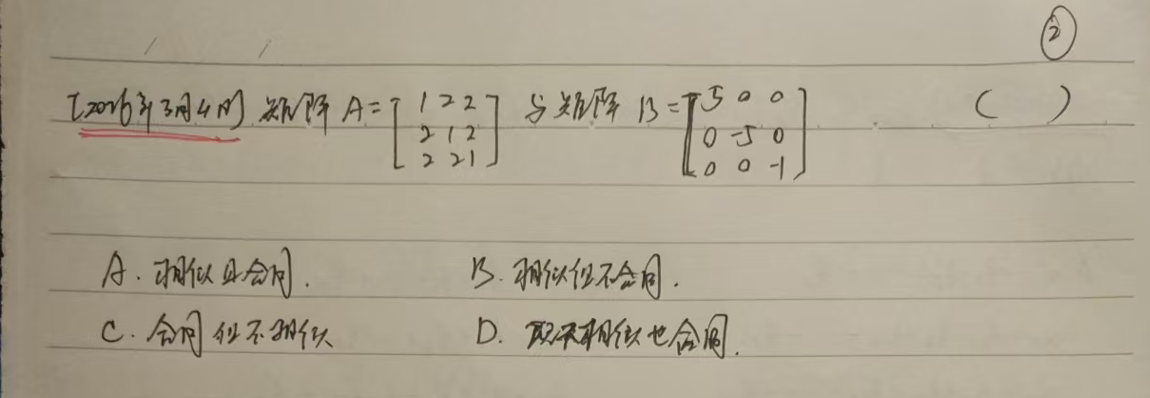 ②
[2026年3月4日] 矩阵 A=[1 2 2 与矩阵 B=[5 0 0 ( )
2 1 2 0 -5 0
2 2 1] 0 0 -1]
A. 相似且合同. B. 相似但不合同.
C. 合同但不相似 D. 既不相似也合同.